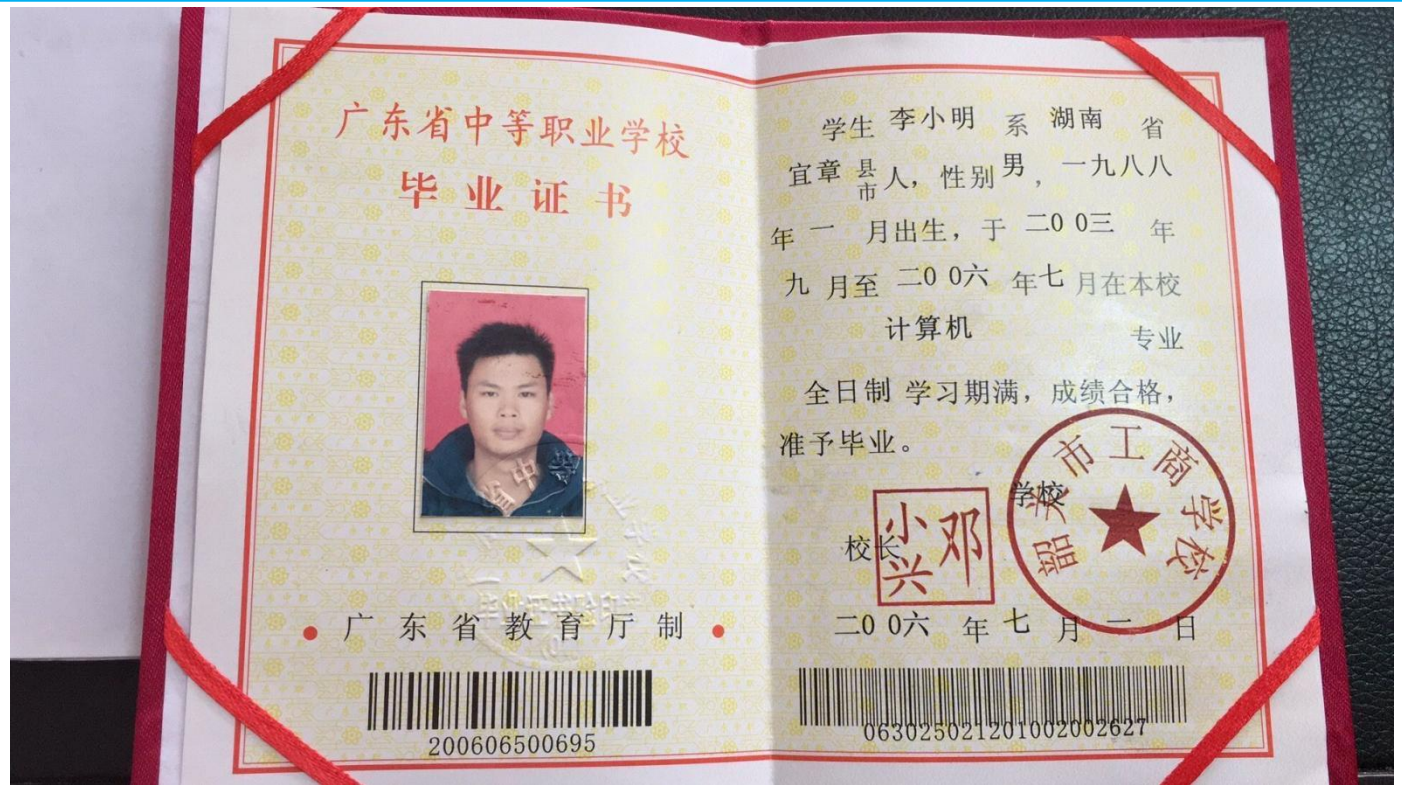 广东省中等职业学校
毕业证书
广东省教育厅制
200606500695
学生 李小明 系 湖南 省
宜章 县市 人，性别 男，一九八八
年 一 月出生，于 二00三 年
九 月至 二00六 年七 月在本校
计算机 专业
全日制 学习期满，成绩合格，
准予毕业。
学校
韶关市工商学校
校长
邓小兴
二00六 年 七 月 一 日
063025021201002002627